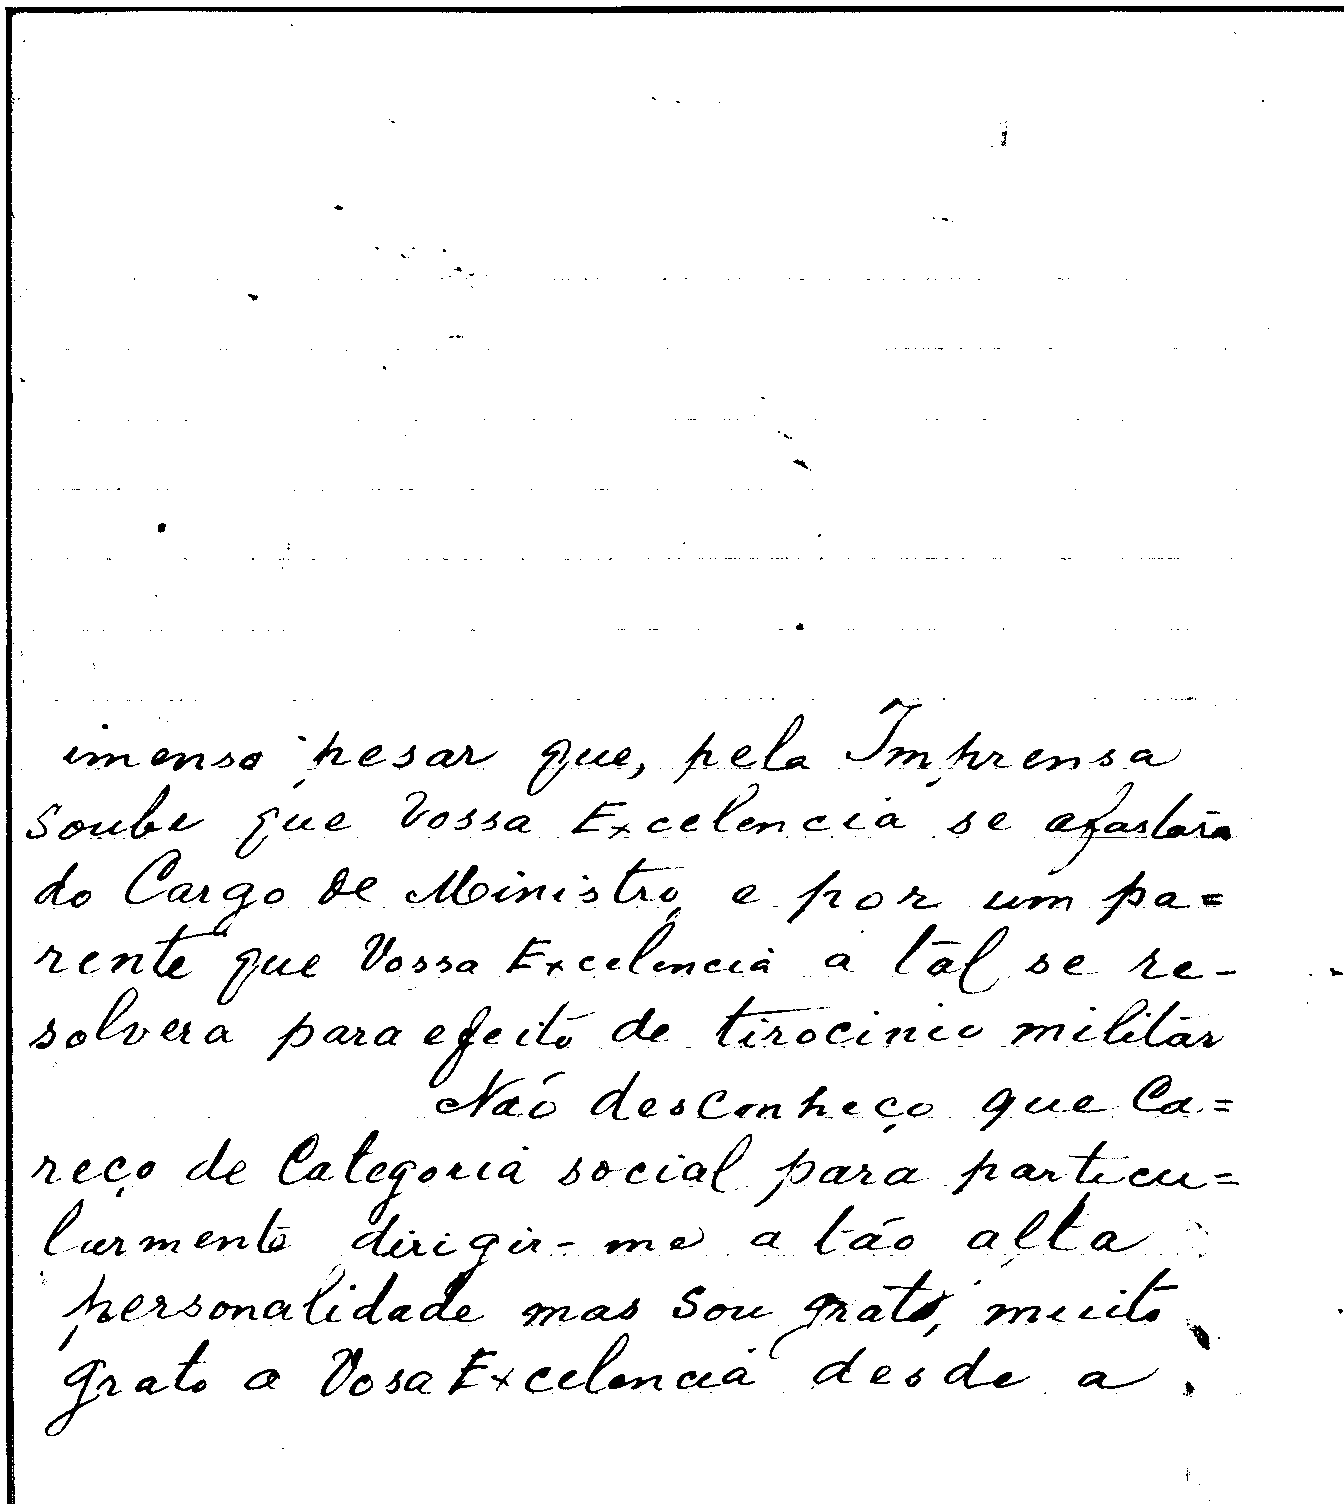 imenso pesar que, pela Imprensa
soube que Vossa Excelencia se afastára
do Cargo de Ministro, e por um pa=
rente que Vossa Excelencia a tál se re-
solvera para efeito de tirocinio militar
Não desconheço que Ca=
reço de Categoria social para particu=
larmente dirigir-me a tão alta
personalidade mas sou grato, muito
grato a Vosa Excelencia desde a